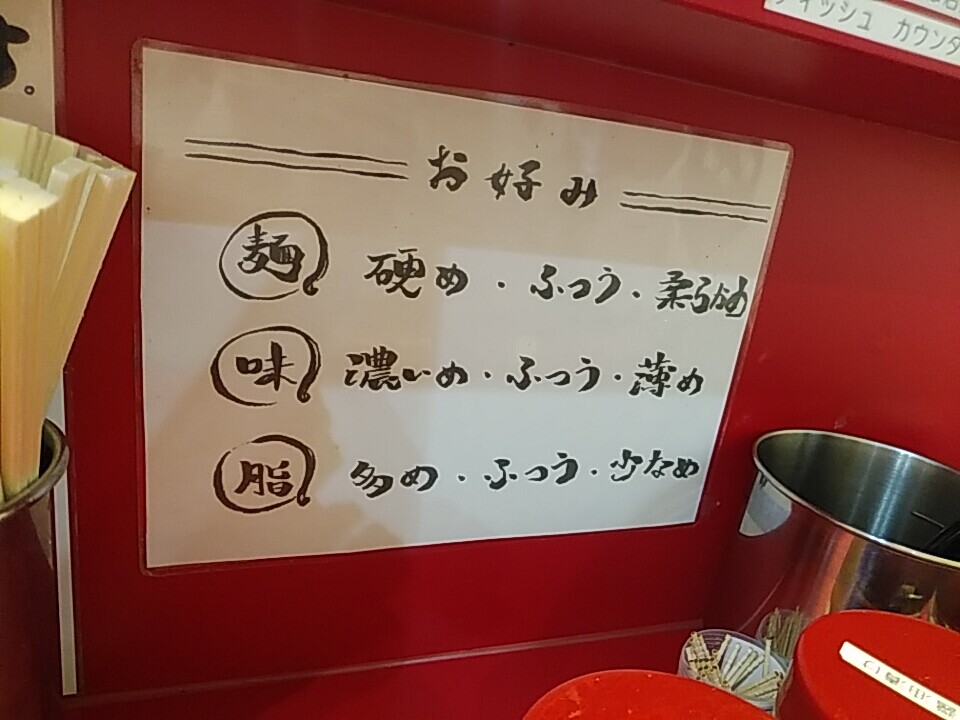 す。
ティッシュ カウンタ
お好み
麺 硬め・ふつう・柔らかめ
味 濃いめ・ふつう・薄め
脂 多め・ふつう・少なめ